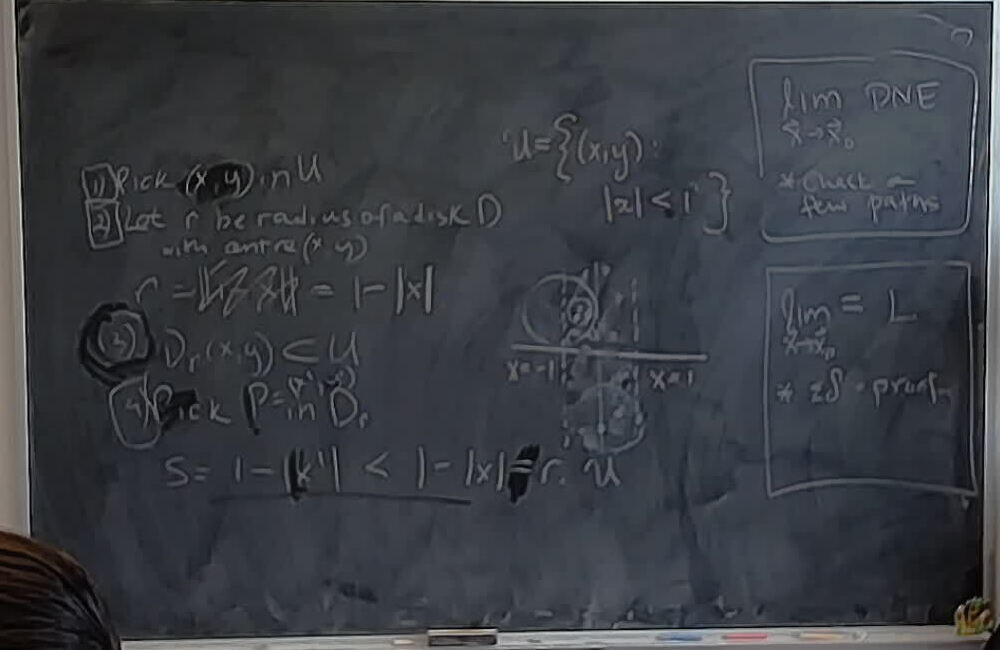 1) Pick (x, y) in U
2) Let r be radius of a disk D
with centre (x y)
r = = 1 - |x|
3) Dr(x,y) ⊂ U
4) Pick P= in Dr
S = 1 - |x'| < 1 - |x| = r. U
U = {(x,y) :
|x| < 1 }
x=-1 x=1
lim DNE
x⃗→x⃗₀
* Check a
few paths
lim = L
x⃗→x⃗₀
* εδ - proof